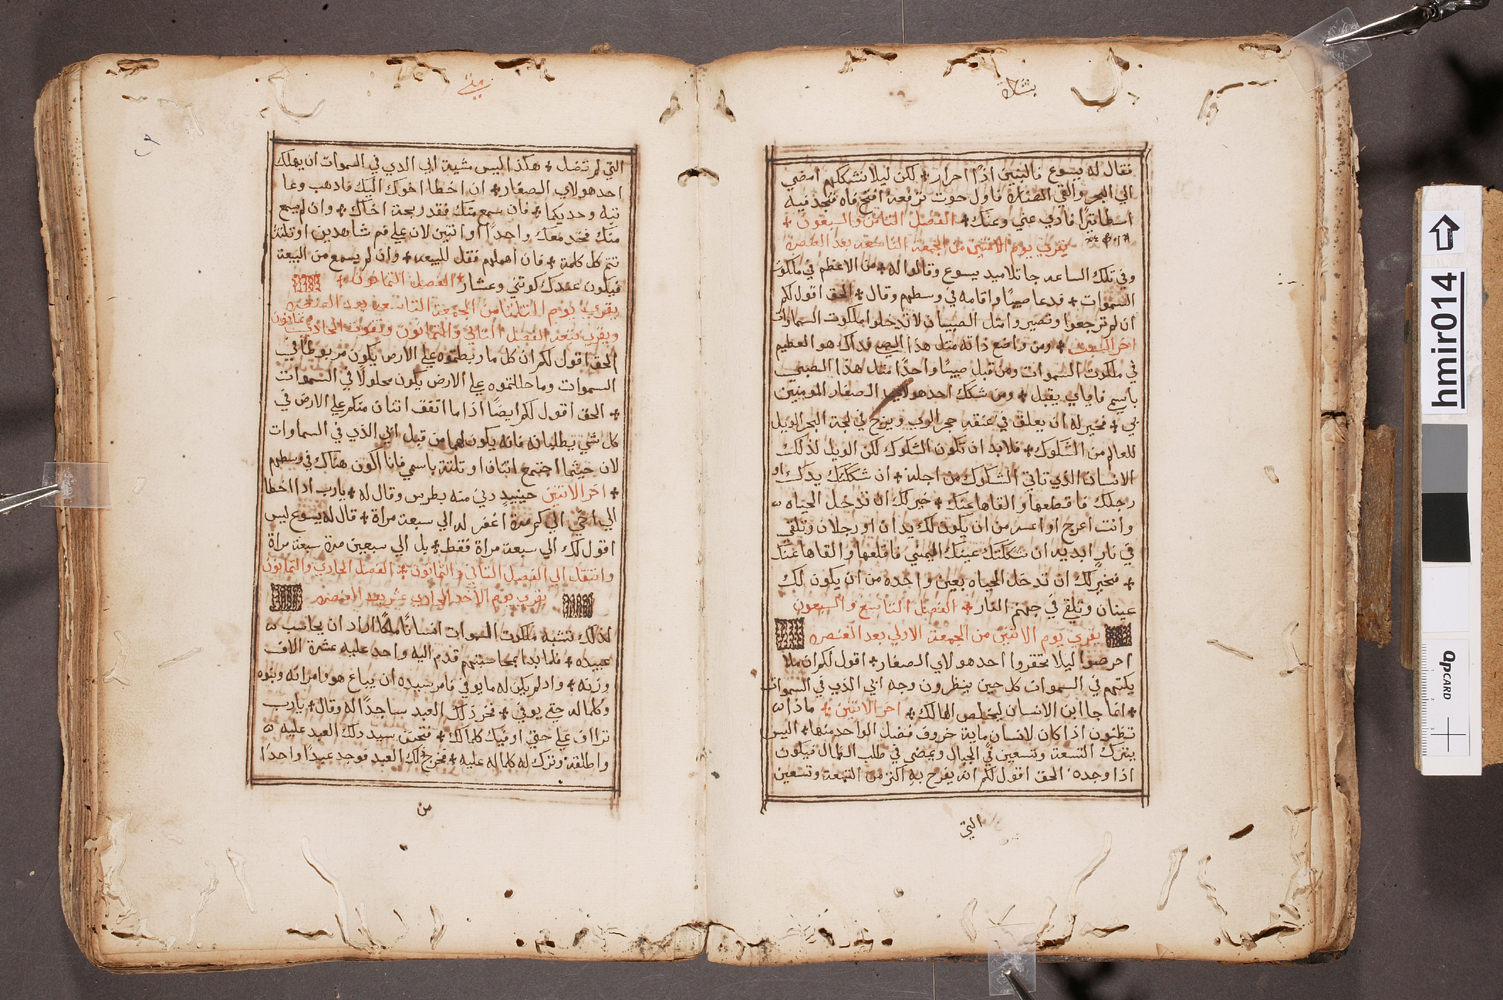 بشارة
فقال له يسوع فالبنين اذًا احرار ⁘ لكن ليلا نشككهم امضي
الي البحر والقي الصنارة فاول حوت ترفعه افتح فاه فتجد فيه
اسطاتيرًا فادي عني وعنك ⁘ الفصل الثامن والسبعون ⁘
يقري يوم الاثنين من الجمعة التاسعة بعد العنصرة
وفي تلك الساعه جا تلاميد يسوع وقالوا له ⁘ من الاعظم في ملكوت
السموات ⁘ فدعا صبيًا واقامه في وسطهم وقال ⁘ الحق اقول لكم
ان لم ترجعوا وتصيروا مثل الصبيان لا تدخلوا ملكوت السماوات
⁘ ومن واضع ذاته مثل هذا الصبي فداك هو العظيم
في ملكوت السموات ومن قبل صبيًا واحدًا مثل هذا الصبي
باسمي فاياي يقبل ⁘ ومن شكك احد هولاي الصغار المومنين
بي ⁘ فخير له ان يعلق في عنقه حجر الرحي ويزج في لجة البحر الويل
للعالم من الشكوك ⁘ فلابد ان تكون الشكوك لكن الويل لذلك
الانسان الذي تاتي الشكوك من اجله ⁘ ان شككتك يدك او
رجلك فاقطعها والقاها عنك ⁘ خير لك ان تدخل الحياه
وانت اعرج او اعسر من ان يكون لك يدان او رجلان وتلقي
في نار ابديه ان شككتك عينك اليمني فاقلعها والقاها عنك
⁘ فخير لك ان تدخل الحياه بعين واحده من ان يكون لك
عينان وتلقي في جهنم النار ⁘ الفصل التاسع والسبعون
يقري يوم الاثنين من الجمعة الاولي بعد العنصره
احرصوا ليلا تحقروا احد هولاي الصغار ⁘ اقول لكم ان ملا
يكتهم في السموات كل حين ينظرون وجه ابي الذي في السموات
⁘ انما جا ابن الانسان ليخلص الهالك ⁘ اخر الاثنين ⁘ ماذا
تظنون اذا كان لانسان ماية خروف فضل الواحد منها ⁘ اليس
يترك التسعة وتسعين في الجبال ويمضي في طلب الضال فيكون
اذا وجده ⁘ الحق اقول لكم انه يفرح به اكثر من التسعة وتسعين
التي
متي
التي لم تضل ⁘ هكذا ليس مشية ابي الدي في السموات ان يهلك
احد هولاي الصغار ⁘ ان اخطا اخوك اليك فادهب وعا
تبه وحديكما ⁘ فان سمع منك فقد ربحة اخاك ⁘ وان لم يسمع
منك فخد معك واحدًا او اتنين لان علي فم شاهدين او تلتة
تتم كل كلمة ⁘ فان اهملهم فقل للبيعه ⁘ وان لم يسمع من البيعة
فيكون عندك كوتني وعشار ⁘ الفصل التمانون ⁘
يقري يوم التلتا من الجمعة التاسعة بعد العنصره
ويقري بعد الفصل التاني والتمانون
الحق اقول لكم ان كل ما ربطتموه علي الارض يكون مربوطًا في
السموات وما حللتموه علي الارض يكون محلولًا في السموات
⁘ الحق اقول لكم ايضًا اذا ما اتفق اتنان منكم علي الارض في
كل شي يطلبانه فانه يكون لهما من قبل ابي الذي في السماوات
لان حيثما اجتمع اتنان او تلتة باسمي فانا اكون هناك في وسطهم
⁘ اخر الاتنين حينيد دني منه بطرس وقال له ⁘ يارب ادا اخطا
الي اخي الي كم مرة اغفر له الي سبعة مراة ⁘ قال له يسوع ليس
اقول لك الي سبعة مراة فقط ⁘ بل الي سبعين مرة سبعة مراة
وانتقل الي الفصل التاني والتمانون ⁘ الفصل الحادي والتمانون
يقري يوم الاحد الحادي عشر بعد العنصره
لدلك تشبه ملكوت السموات انسانًا ملكًا اراد ان يحاسب
عبيده ⁘ فلما بدا بمحاسبتهم قدم اليه واحد عليه عشرة الاف
وزنه ⁘ واد لم يكن له ما يوفي فامر سيده ان يباع هو وامراته وبنوه
وكلما له حتي يوفي ⁘ فخر ذلك العبد ساجدًا له وقال ⁘ يارب
تراأف علي حتي اوفيك كلما لك ⁘ فتحنن سيد ذلك العبد عليه
واطلقه وترك له كلما له عليه ⁘ فخرج ذلك العبد فوجد عبدًا واحدًا
من
hmir014
QPCARD